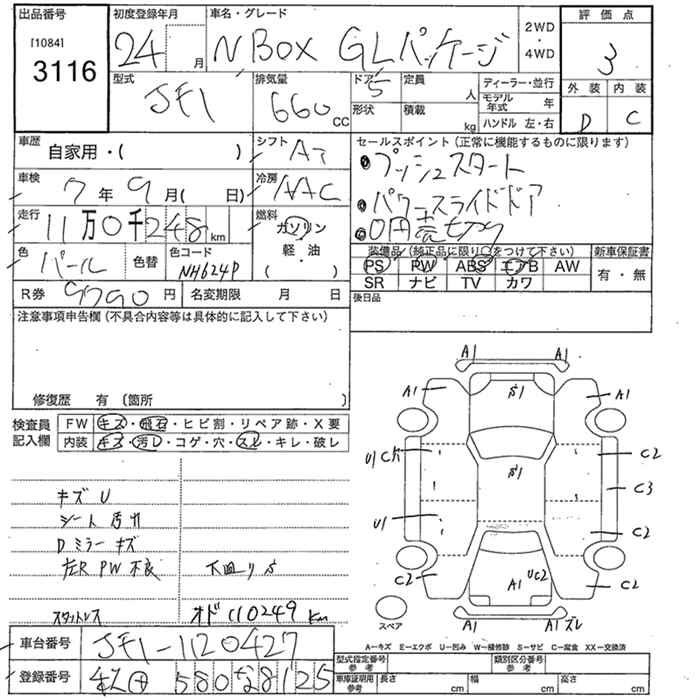 出品番号 初度登録年月 車名・グレード 2WD ・ 4WD 評価点
[1084]
3116
24 月 N BOX GLパッケージ 3
型式 排気量 ドア 定員 ディーラー・並行 外装 内装
JF1 660 CC 5 人 モデル年式 年 D C
形状 積載 kg ハンドル 左・右
車歴 自家用・( ) シフト AT セールスポイント (正常に機能するものに限ります)
●プッシュスタート
車検 7年9月( 日) 冷房 AAC ●パワースライドドア
走行 11万0千248km 燃料 ガソリン 軽・油 ( ) ●0円売切
色 パール 色替 色コード NH624P 装備品 (純正品に限り○をつけて下さい) 新車保証書
PS PW ABS エアB AW 有・無
R券 9790円 名変期限 月 日 SR ナビ TV カワ
注意事項申告欄 (不具合内容等は具体的に記入して下さい) 後日品
修復歴 有 (箇所 )
検査員記入欄 FW キズ・飛石・ヒビ割・リペア跡・X要
内装 キズ・汚レ・コゲ・穴・スレ・キレ・破レ
キズ U
シート 汚れ
Dミラー キズ
左R PW 不良 下回りS
スタットレス オド 110249 Km
A1 A1
A1 S1 A1
U1 C2
S1 C3
U1 C2
C2 A1 UC2 C2
A1 A1 ズレ
スペア
A−キズ E−エクボ U−凹み W−補修跡 S−サビ C−腐食 XX−交換済
車台番号 JF1-1120427 型式指定番号 参考 類別区分番号 参考
登録番号 580 28125 車庫証明用 参考 長さ cm 幅 cm 高さ cm